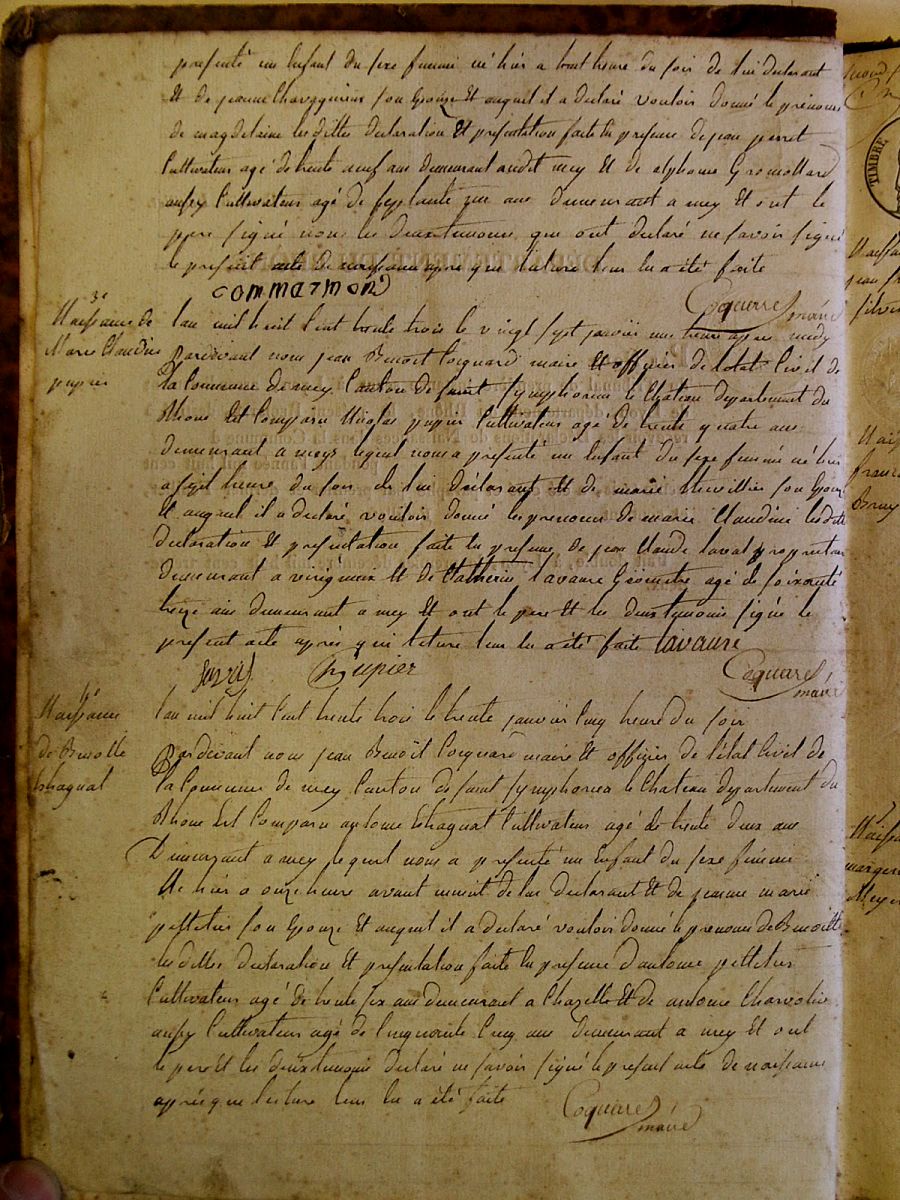 presenté un enfant du sexe feminin né hier a huit heure du soir de lui declarant
Et de jeanne son epouze Et auquel il a declaré vouloir donné le prénom
de magdelaine les dittes declaration Et presentation faite en presence de jean perret
Cultivateur agé de trente neuf ans demeurant audit mey Et de alphonse
aussy Cultivateur agé de ans demeurant a mey Et ont le
pere signé nous les deux temoins que ont declaré ne savoir signé
le present acte de naissance apre que lature leur lu a été faite
commarmond
Coquard maire
3e
Naissance de
Marie Claudine
pupier
Lan mil huit Cent trente trois le vingt sept janvier une heure apres midy
Pardevant nous jean Benoit Coquard maire Et officier de letat Civil de
la Commune de mey Canton de saint symphorien le Chateau departement du
Rhone Est Comparu Nicolas pupier Cultivateur agé de trente quatre ans
demeurant a meys lequel nous a presenté un enfant du sexe feminin né hier
a sept heure du soir de lui déclarant Et de marie son epouze
Et auquel il a declaré vouloir donné les prenoms de marie Claudine lesditte
declaration Et presentation faite en presence de jean Claude laval propriétaire
demeurant a virigneux Et de Catherin lavaure Géometre agé de soixante
treize ans demeurant a mey Et ont le pere Et les deux temoins signé le
present acte après que lecture leur lu a été faite lavaure
pupier
Coquard
maire
4e
Naissance
de Benoitte
Chagnat
Lan mil huit Cent trente trois le trente janvier Cinq heure du soir
Pardevant nous jean Benoit Coquard maire Et officier de l'état Civil de
la Commune de mey Canton de saint symphorien le Chateau departement du
Rhone Est Comparu antoine Chagnat Cultivateur agé de trente deux ans
Demeurant a mey lequel nous a presenté un enfant du sexe feminin
Né hier a onze heure avant minuit de lui declarant Et de jeanne marie
son epouze Et auquel il a declaré vouloir donné le prenom de Benoitte
les dittes declaration Et presentation faite en presence d'antoine
Cultivateur agé de trente six ans demeurant a Chazelle Et de antoine
aussy Cultivateur agé de Cinquante Cinq ans demeurant a mey Et ont
le pere Et les deux temoins declaré ne savoir signé le present acte de naissance
après que lecture leur lu a été faite
Coquard
maire
TIMBRE